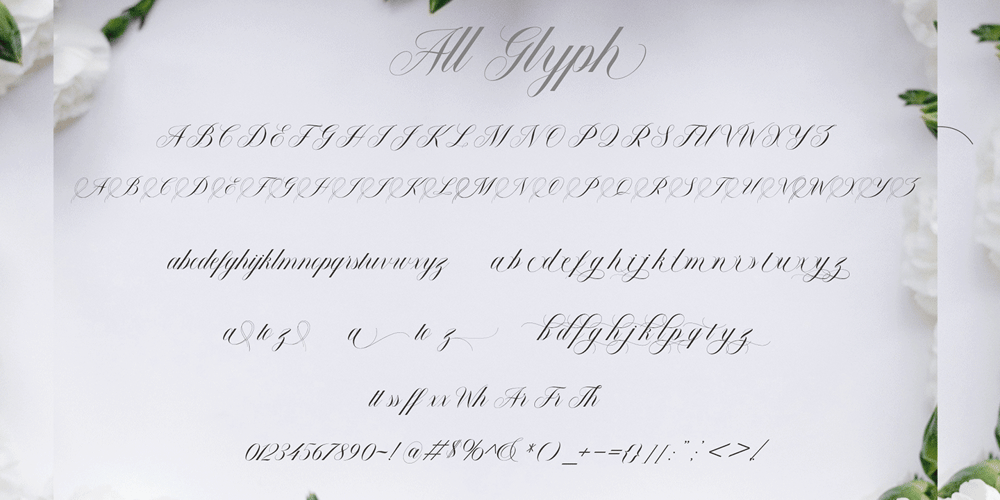 All Glyph
A B C D E F G H I J K L M N O P Q R S T U V W X Y Z
A B C D E F G H I J K L M N O P Q R S T U V W X Y Z
abcdefghijklmnopqrstuvwxyz a b c d e f g h i j k l m n r s t u x y z
a to z a to z b d f g h j k l p q t y z
tt ss ff xx Wh Ar Fr Th
0123456789 0~!@#$%^&*()_+-={}//:";'<>!.